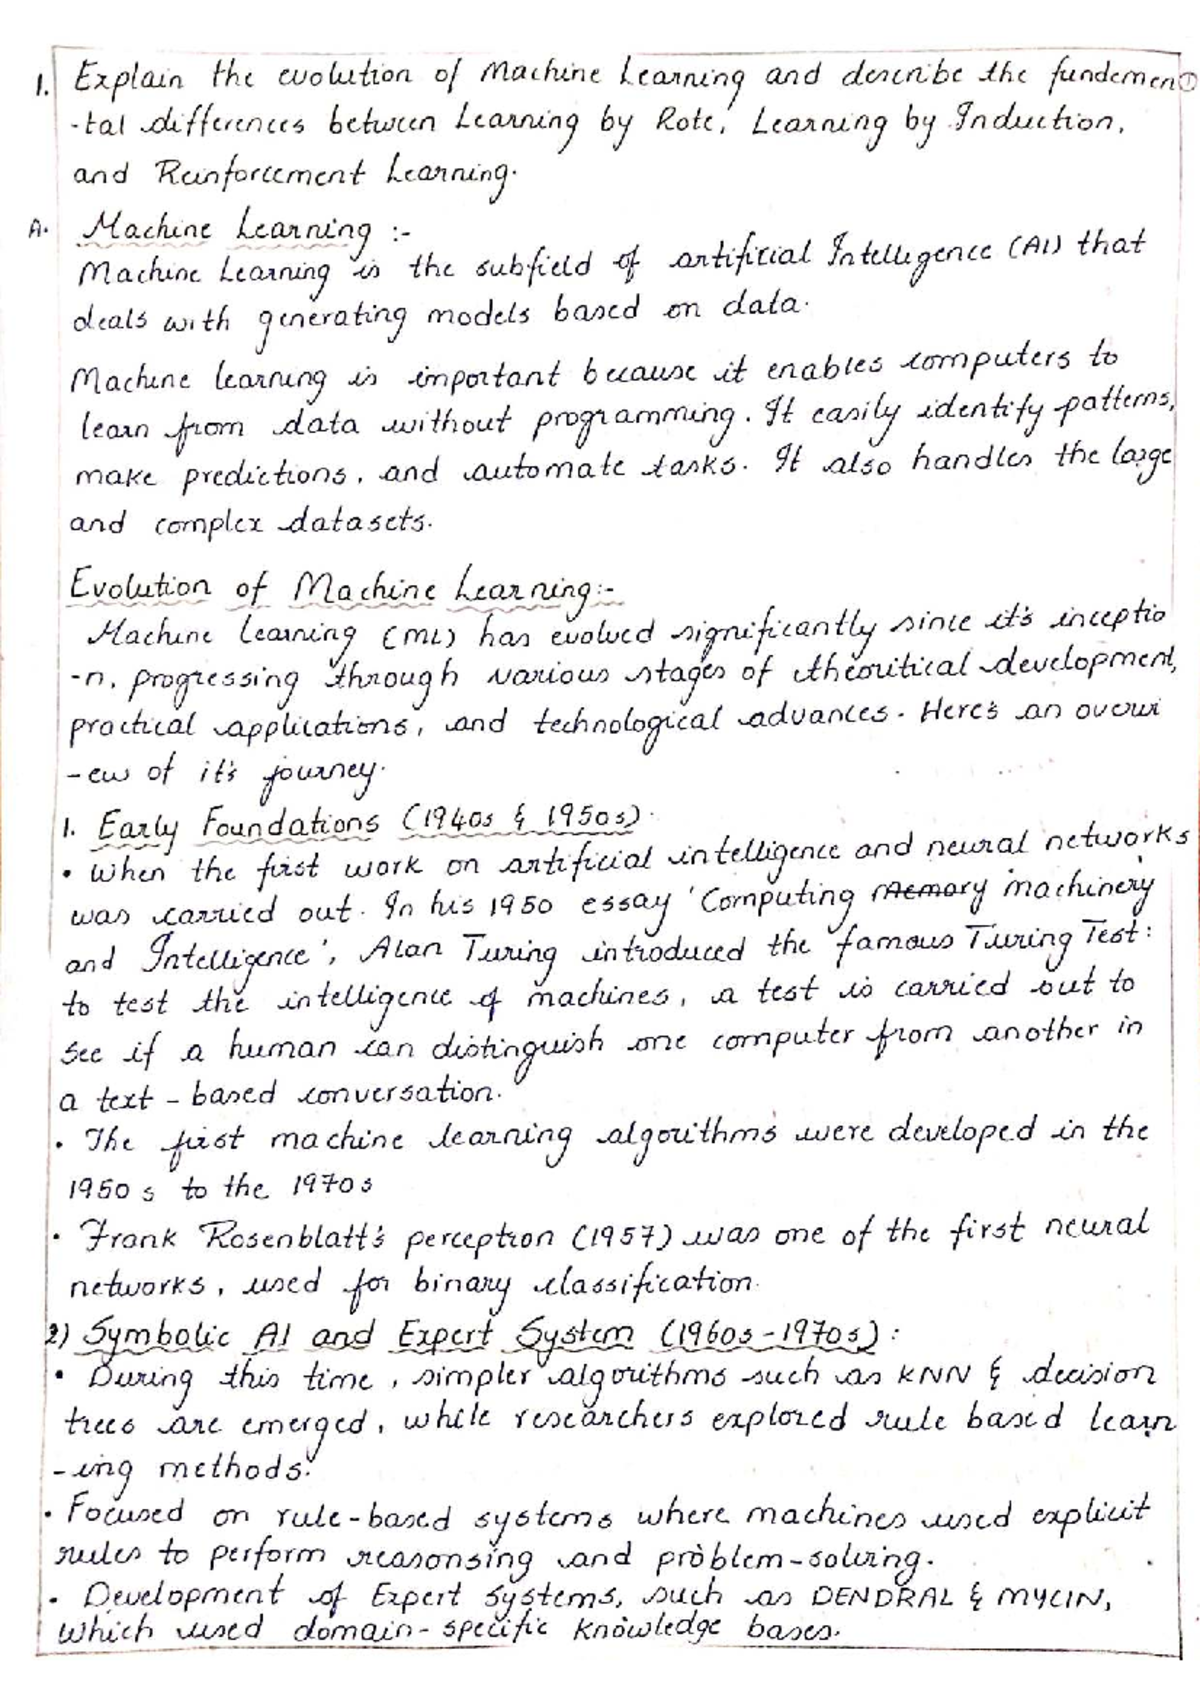 1. Explain the evolution of Machine Learning and describe the fundemen ①
-tal differences between Learning by Rote, Learning by Induction,
and Reinforcement Learning.
A. Machine Learning :-
Machine Learning is the subfield of artificial Intelligence (AI) that
deals with generating models based on data.
Machine learning is important because it enables computers to
learn from data without programming. It easily identify patterns,
make predictions, and automate tasks. It also handles the large
and complex datasets.
Evolution of Machine Learning:-
Machine learning (ML) has evolved significantly since it's inceptio
-n, progressing through various stages of theoritical development,
practical applications, and technological advances. Here's an overvi
-ew of it's journey.
1. Early Foundations (1940s & 1950s).
• When the first work on artificial intelligence and neural networks
was carried out. In his 1950 essay 'Computing Memory machinery
and Intelligence', Alan Turing introduced the famous Turing Test:
to test the intelligence of machines, a test is carried out to
see if a human can distinguish one computer from another in
a text - based conversation.
• The first machine learning algorithms were developed in the
1950s to the 1970s
• Frank Rosenblatt's perception (1957) was one of the first neural
networks, used for binary classification.
2) Symbolic AI and Expert System (1960s-1970s):
• During this time, simpler algorithms such as KNN & decision
trees are emerged, while researchers explored rule based learn
-ing methods.
• Focused on rule-based systems where machines used explicit
rules to perform reasonsing and problem-solving.
• Development of Expert Systems, such as DENDRAL & MYCIN,
which used domain-specific knowledge bases.